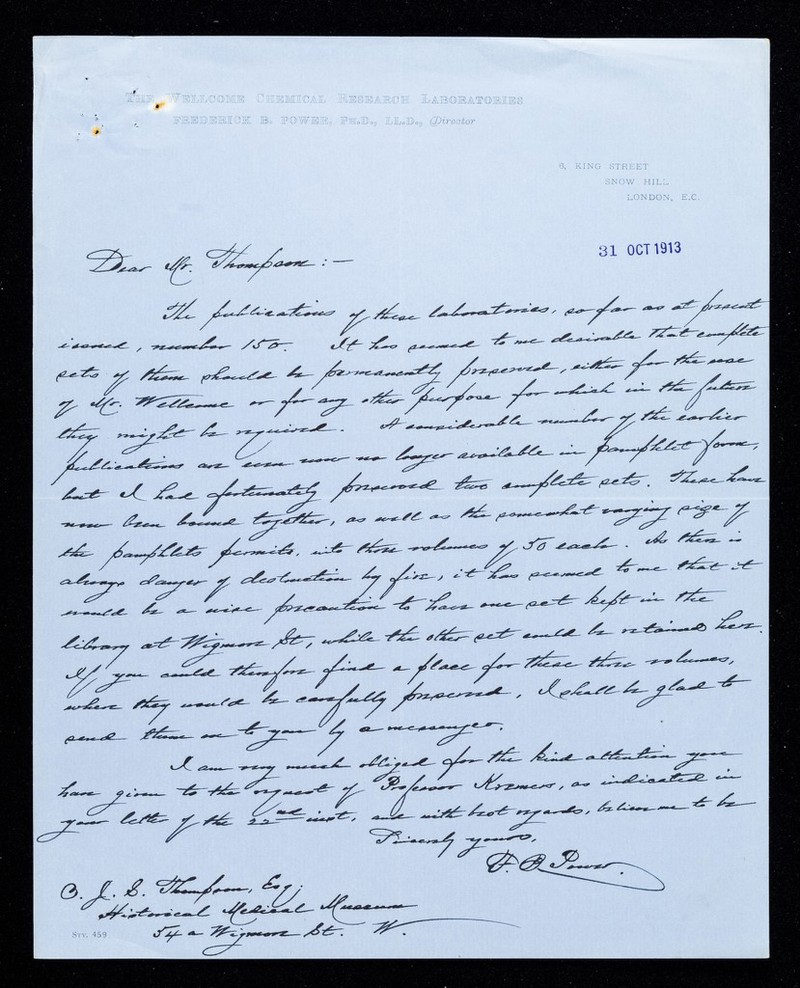 THE WELLCOME CHEMICAL RESEARCH LABORATORIES
FREDERICK B. POWER, PH.D., LL.D., Director
6, KING STREET
SNOW HILL
LONDON, E.C.
31 OCT 1913
Dear Mr. Thompson:—
The publications of these laboratories, so far as at present
issued, number 150. It has seemed to me desirable that complete
sets of them should be permanently preserved, either for the use
of Mr. Wellcome or for any other purpose for which in the future
they might be required. A considerable number of the earlier
publications are even now no longer available in pamphlet form,
but I had fortunately preserved two complete sets. These have
now been bound together, as well as the somewhat varying size of
the pamphlets permits, into three volumes of 50 each. As there is
always danger of destruction by fire, it has seemed to me that it
would be a wise precaution to have one set kept in the
library at Wigmore St, while the other set could be retained here.
If you could therefore find a place for these three volumes,
where they would be carefully preserved, I shall be glad to
send them on to you by a messenger.
I am very much obliged for the kind attention you
have given to the request of Professor Kremers, as indicated in
your letter of the 22nd inst, and with best regards, believe me to be
Sincerely yours,
F. B. Power.
C. J. S. Thompson, Esq,
Historical Medical Museum
54a Wigmore St. W.
Sty. 459